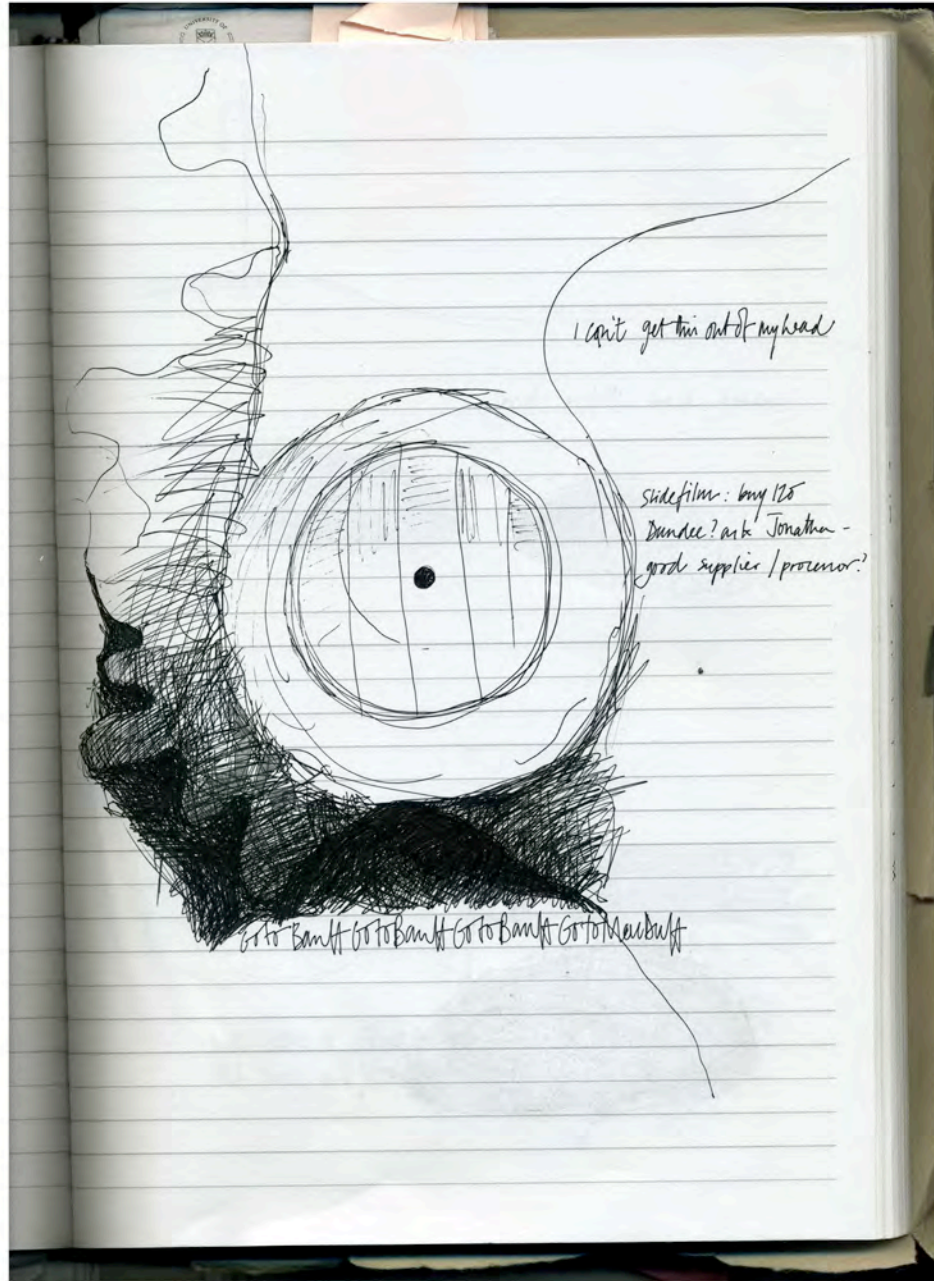 UNIVERSITY OF
I can't get this out of my head
slide film: buy 120
Dundee? ask Jonathan -
good supplier / processor?
Go to Banff Go to Banff Go to Banff Go to Macduff